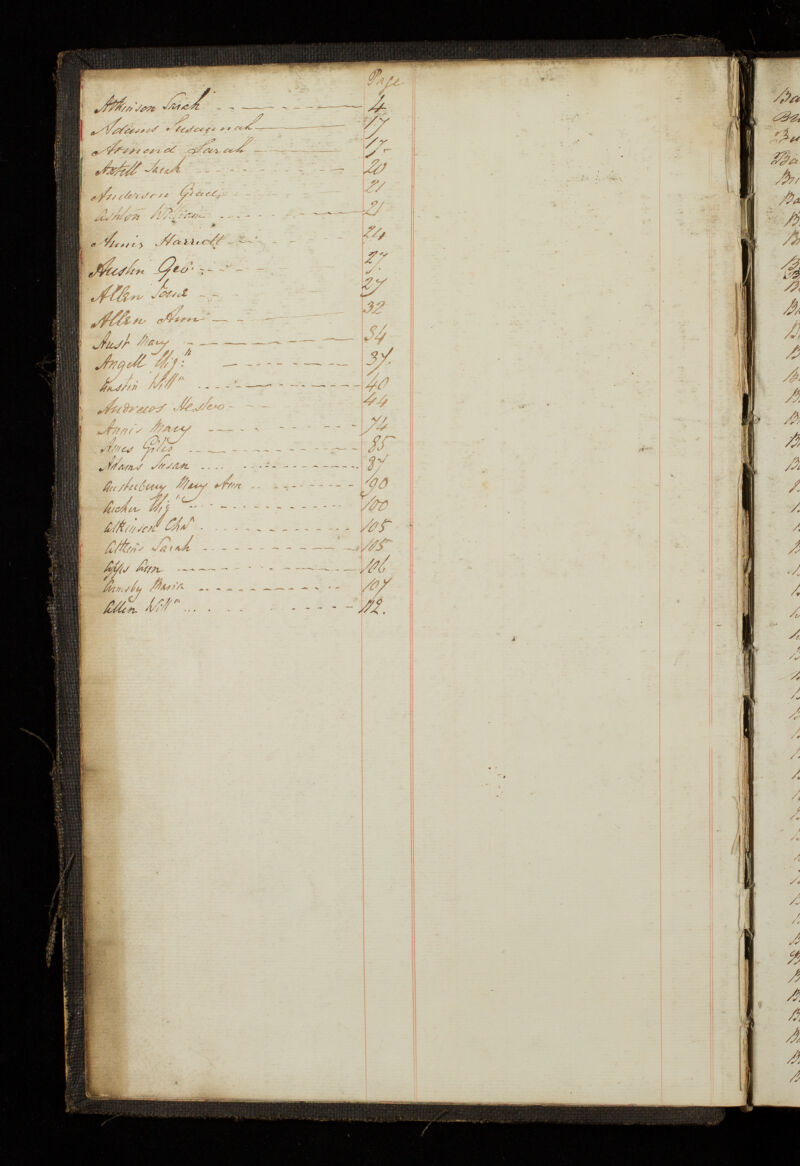 Page
Atkinson Sarah 4
Adams Susannah 17
Armond Sarah 17
Axtell Sarah 20
Anderson Grace 21
Ashton William 21
Annis Harriott 24
Austin Geo: 27
Allen 27
Allen Ann 32
Aust Mary 34
Angell Eliz: 37.
Austin Willm 40
Andrews Hester 44
Annis Mary 74
Ames Giles 85
Adams Susan 87
Austerbury Mary Ann 90
Archer Eliz 100
Atkinson Chas 105
Atkins Sarah 105
Apps Ann 106
Armsby Maria 107
Allen Willm 112.